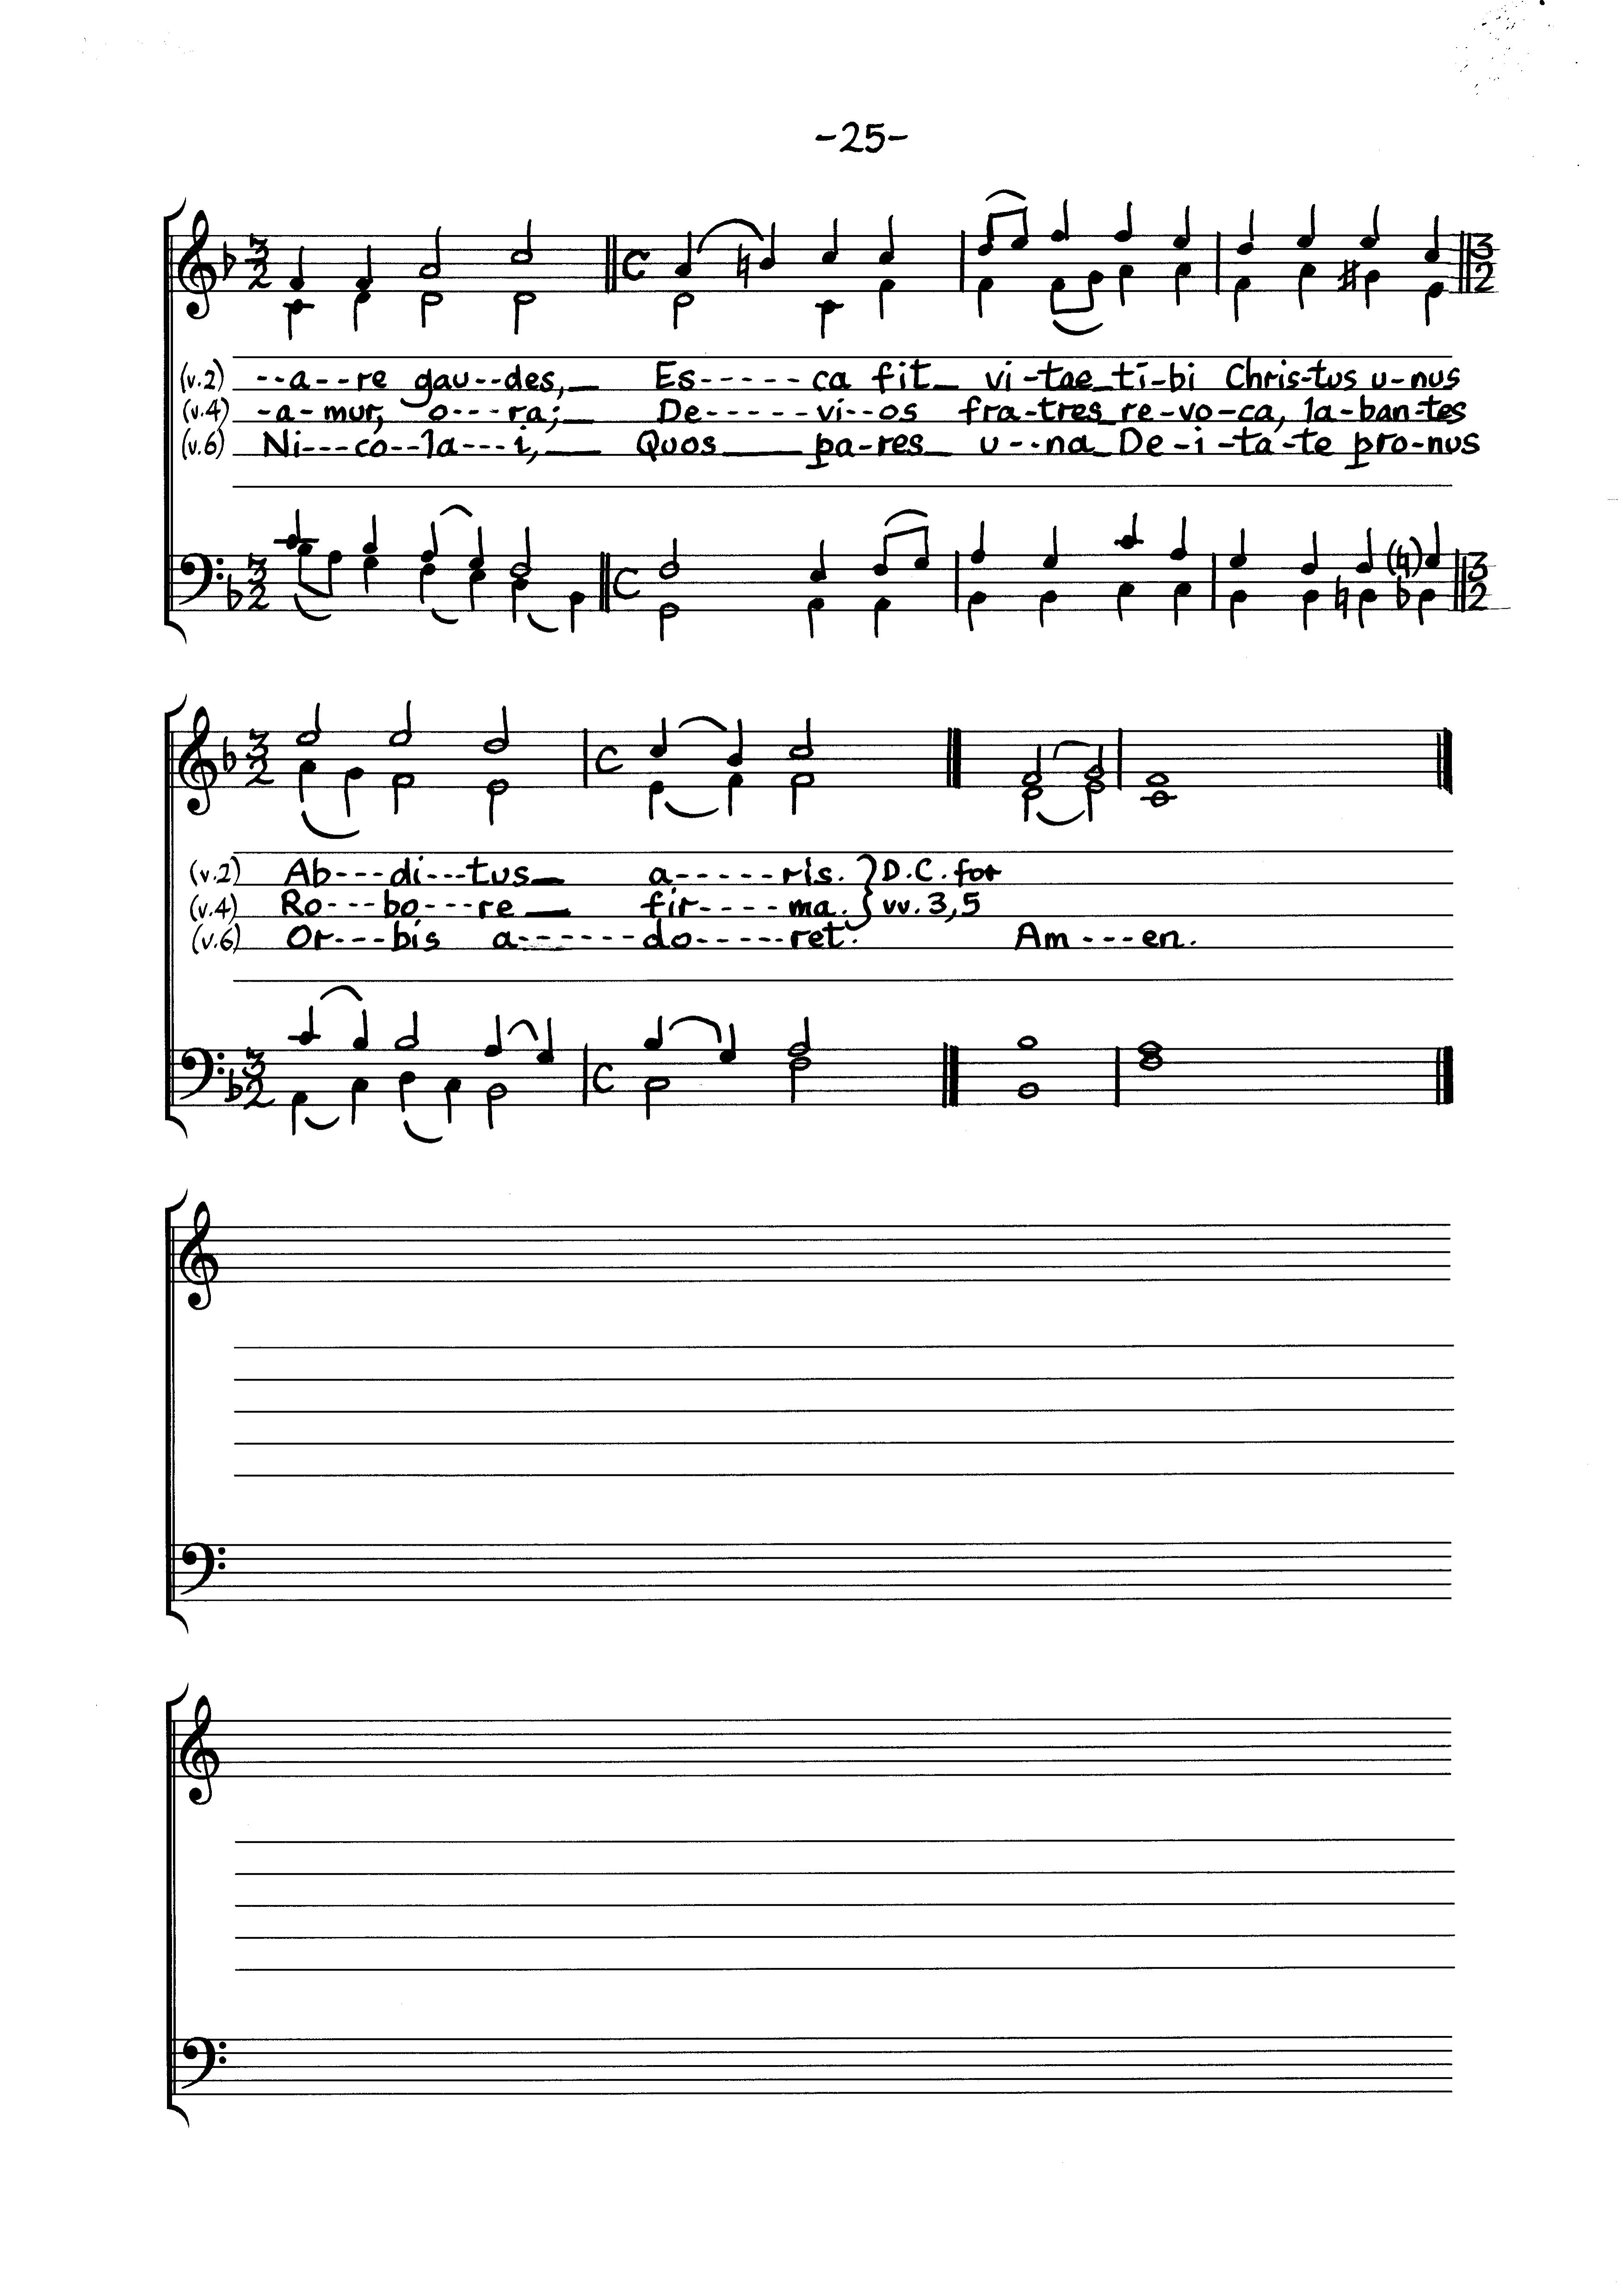 -25-
(v.2) --a--re gau--des,_ Es-----ca fit_ vi-tae_ti-bi Chris-tus u-nus
(v.4) -a-mur, o---ra;_ De-----vi--os fra-tres_re-vo-ca, la-ban-tes
(v.6) Ni---co--la---i,_ Quos_pa-res_ u--na_De-i-ta-te pro-nus
(v.2) Ab---di---tus_ a-----ris. } D.C. for
(v.4) Ro---bo---re_ fir----ma. } vv. 3,5
(v.6) Or---bis a------do-----ret. Am---en.